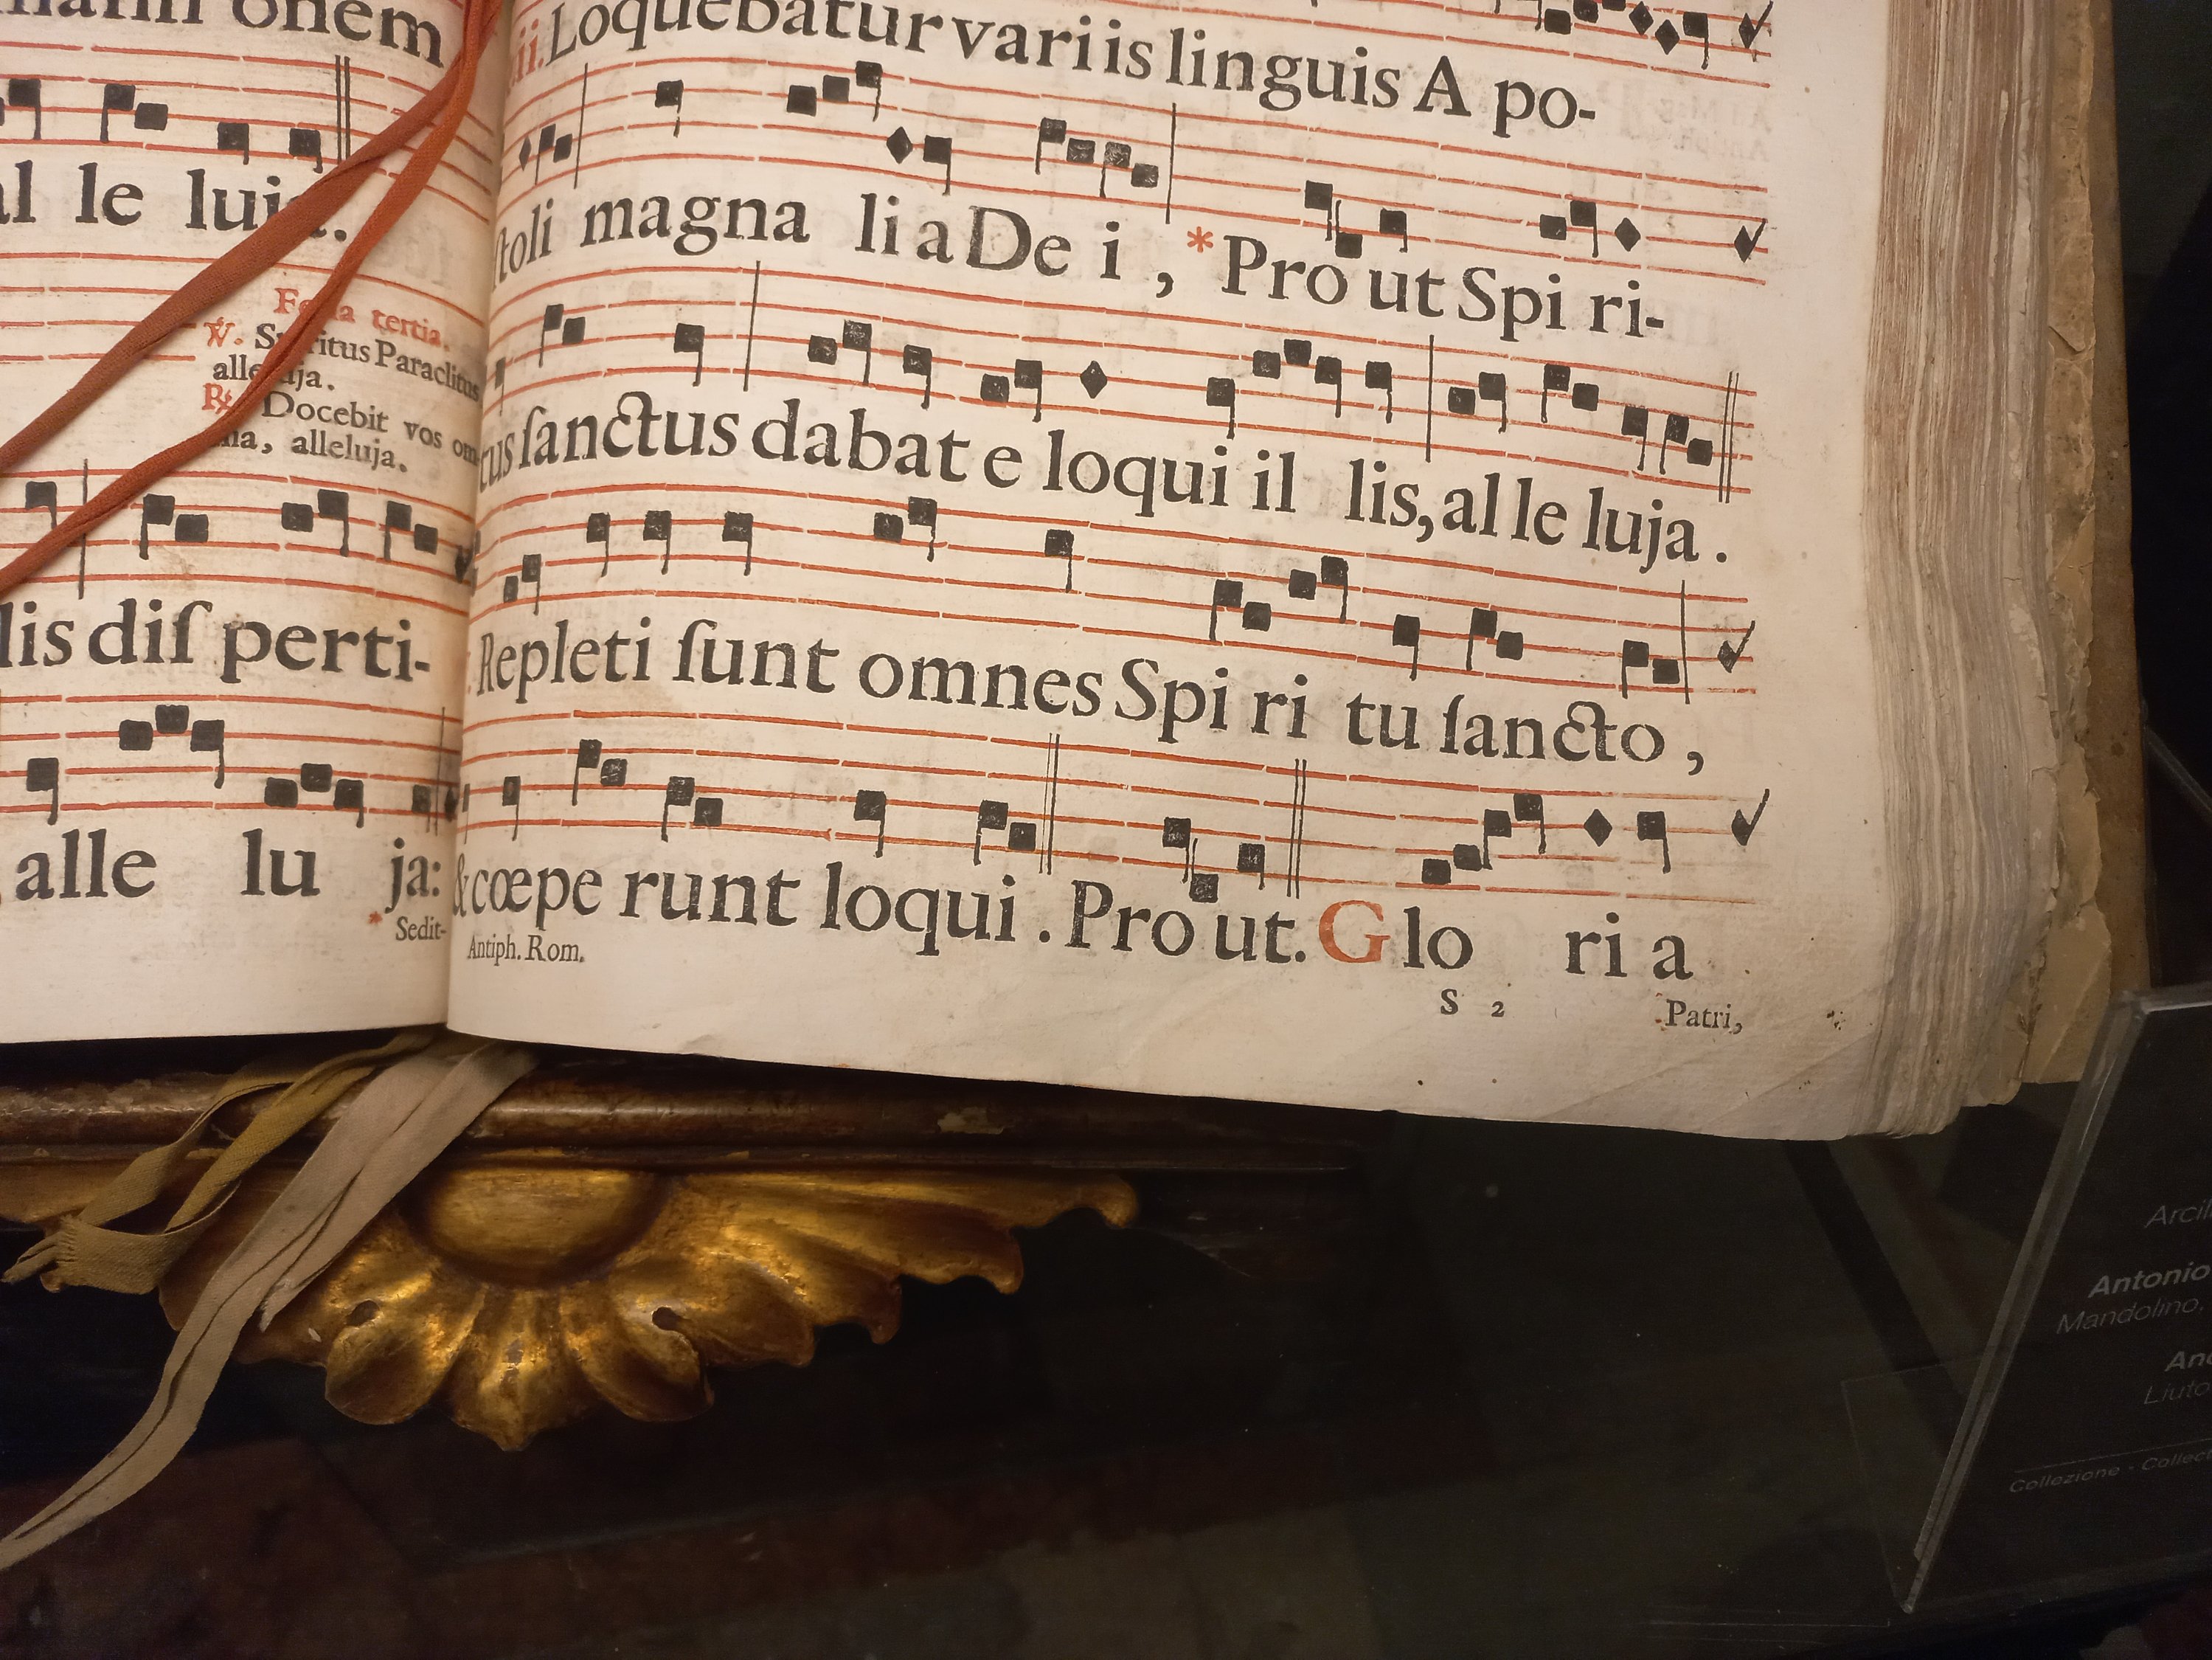 onem
al le luia.
tertia.
℣. Spiritus Paraclitus
alleluja.
℟. Docebit vos
alleluja.
lis diſ perti-
alle lu ja:
* Sedit-
Loquebatur variis linguis A po-
ſtoli magna li a De i , * Pro ut Spi ri-
tus ſanctus dabat e loqui il lis, al le luja .
Repleti ſunt omnes Spi ri tu ſancto ,
& cœpe runt loqui . Pro ut. G lo ri a
Antiph. Rom.
S 2
Patri,
Antonio
Mandolino,
Liuto
Collezione -